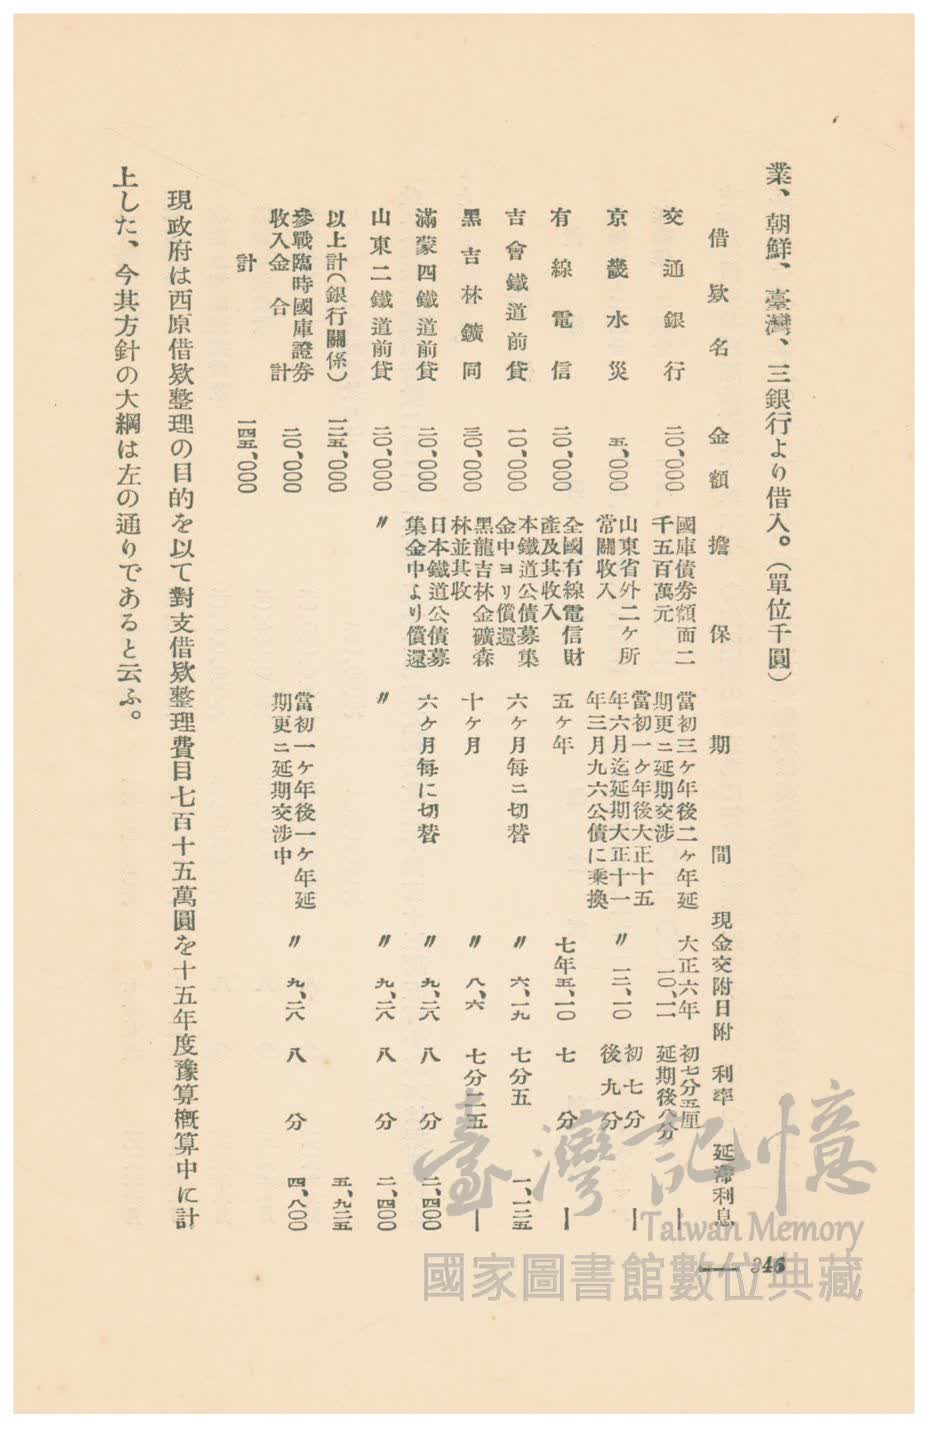 業、朝鮮、臺灣、三銀行より借入。(單位千圓)
借欵名　金額　擔保　期間　現金交附日附　利率　延滯利息
交通銀行　二〇、〇〇〇　國庫債券額面二千五百萬元　當初三ヶ年後二ヶ年延期更ニ延期交渉　大正六年一〇、一二　初七分五厘延期後八分　—
京畿水災　五、〇〇〇　山東省外二ヶ所常關收入　當初一ヶ年後大正十五年六月迄延期大正十一年三月九六公債に乘換　〃　一二、一〇　初七分後九分　—
有線電信　二〇、〇〇〇　全國有線電信財產及其收入　五ヶ年　七年五、一〇　七分　—
吉會鐵道前貸　一〇、〇〇〇　本鐵道公債募集金中ヨリ償還　六ヶ月每ニ切替　〃　六、一九　七分五　一、一二五
黑吉林鑛同　三〇、〇〇〇　黑龍吉林金礦森林並其收　十ヶ月　〃　八、六　七分二五　—
滿蒙四鐵道前貸　二〇、〇〇〇　日本鐵道公債募集金中より償還　六ヶ月每に切替　〃　九、二八　八分　二、四〇〇
山東二鐵道前貸　二〇、〇〇〇　〃　〃　〃　九、二八　八分　二、四〇〇
以上計(銀行關係)　一二五、〇〇〇　五、九二五
參戰臨時國庫證券收入金合計　二〇、〇〇〇　當初一ヶ年後一ヶ年延期更ニ延期交渉中　〃　九、二八　八分　四、八〇〇
計　一四五、〇〇〇
現政府は西原借欵整理の目的を以て對支借欵整理費目七百十五萬圓を十五年度豫算槪算中に計
上した、今其方針の大綱は左の通りであると云ふ。
346
臺灣記憶
Taiwan Memory
國家圖書館數位典藏